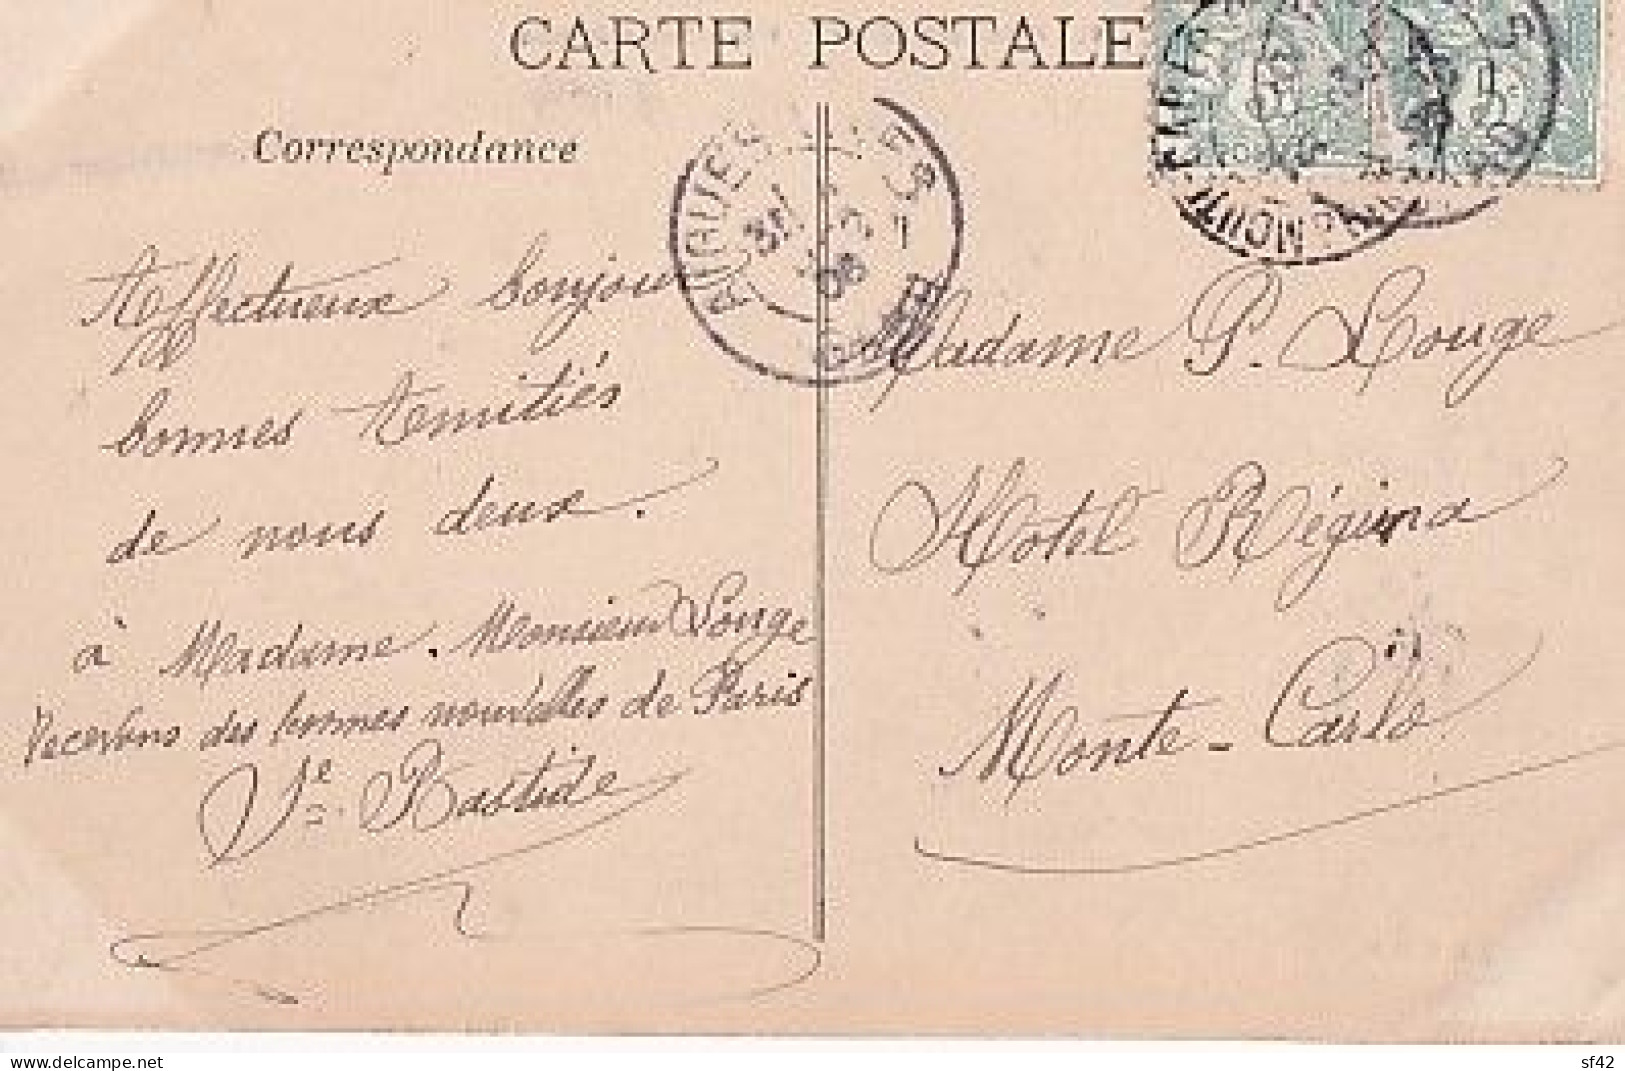 CARTE POSTALE
Correspondance
Affectueux bonjour
bonnes Amitiés
de nous deux.
à Madame. Monsieur Longe
recevons des bonnes nouvelles de Paris
Ve Bastide
AIGUES
GARD
Madame P. Longe
Hotel Régina
Monte-Carlo
www.delcampe.net
sf42